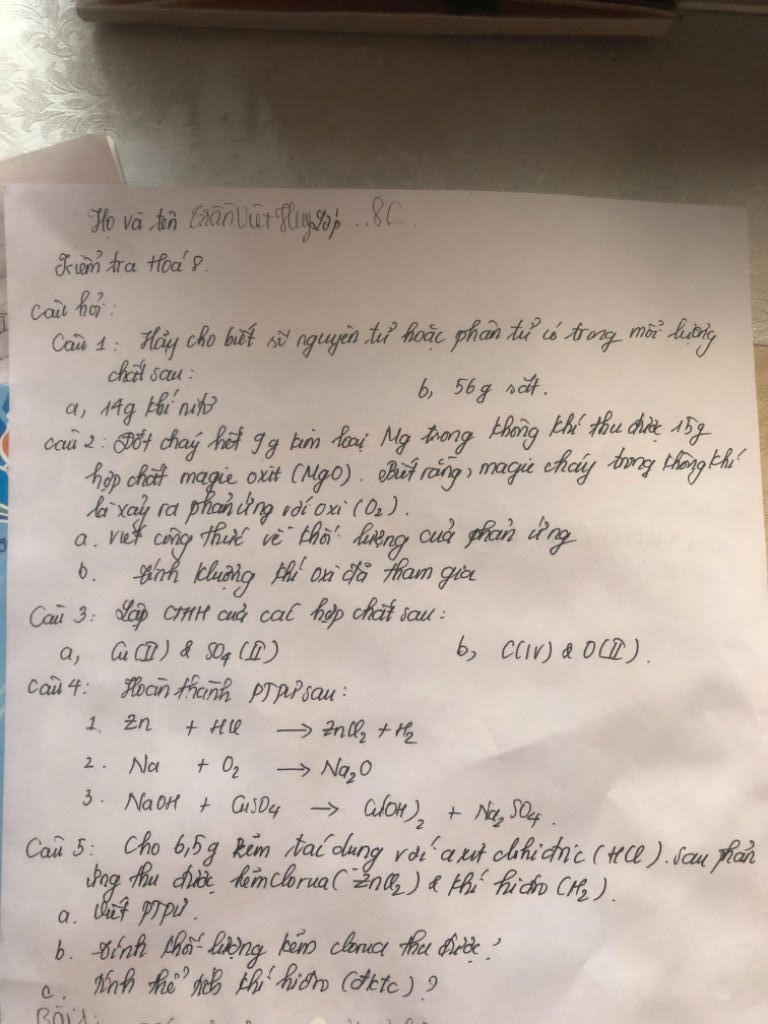 Họ và tên Trần Việt Huy Lớp ..8C..
Kiểm tra Hoá 8.
Câu hỏi:
Câu 1: Hãy cho biết số nguyên tử hoặc phân tử có trong mỗi lượng
chất sau:
a, 14g khí nitơ b, 56g sắt.
Câu 2: Đốt cháy hết 9g kim loại Mg trong không khí thu được 15g
hợp chất magie oxit (MgO). Biết rằng, magie cháy trong không khí
là xảy ra phản ứng với oxi (O₂).
a. Viết công thức về khối lượng của phản ứng
b. Tính klượng khí oxi đã tham gia
Câu 3: Lập CTHH của các hợp chất sau:
a, Cu(II) & SO₄ (II) b, C(IV) & O(II).
Câu 4: Hoàn thành PTPƯ sau:
1. Zn + HCl → ZnCl₂ + H₂
2. Na + O₂ → Na₂O
3. NaOH + CuSO₄ → Cu(OH)₂ + Na₂SO₄.
Câu 5: Cho 6,5g kẽm tác dụng với axit clohiđric (HCl). Sau phản
ứng thu được kẽm clorua (ZnCl₂) & khí hiđro (H₂).
a. Viết PTPƯ.
b. Tính khối lượng kẽm clorua thu được?
c. Tính thể tích khí hiđro (đktc)?